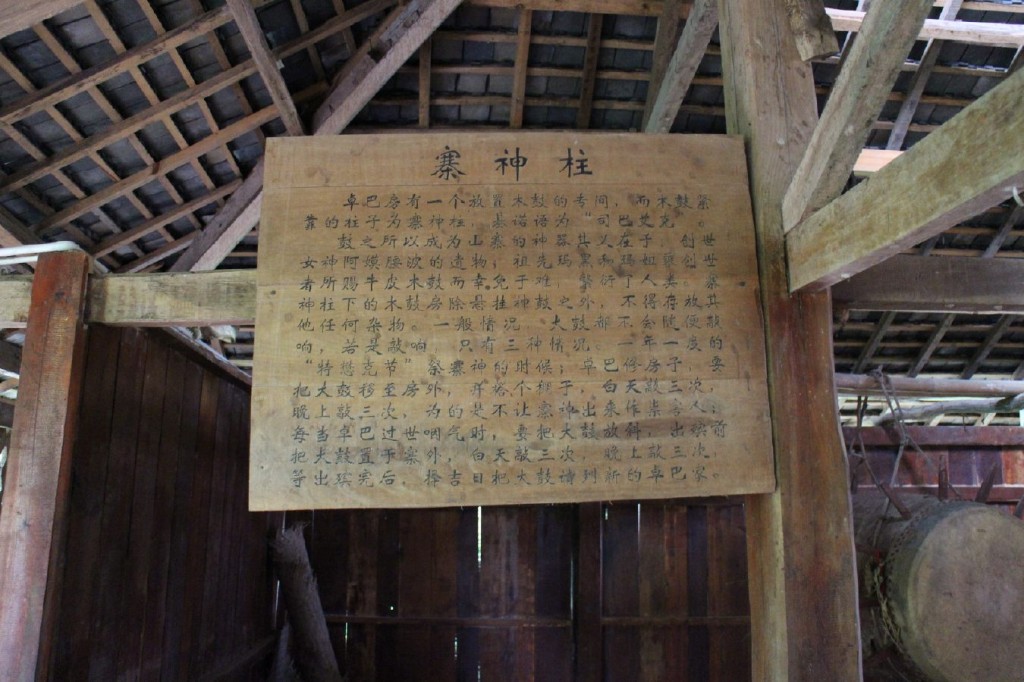 寨神柱
卓巴房有一个放置木鼓的专间，而木鼓紧
靠的柱子为寨神柱，基诺语为“司巴艾克”
鼓之所以成为山寨的神器其义在于，创世
女神阿嫫腰波的遗物，祖先玛黑和玛妞因创世
者所赐牛皮木鼓而幸免于难，繁衍了人类，寨
神柱下的木鼓房除悬挂神鼓之外，不得存放其
他任何杂物。一般情况 大鼓都不会随便敲
响，若是敲响，只有三种情况：一年一度的
“特懋克节”祭寨神的时候；卓巴修房子，要
把大鼓移至房外，并搭个棚子，白天敲三次，
晚上敲三次，为的是不让寨神出来作祟害人；
每当卓巴过世咽气时，要把大鼓放斜，出殡前
把大鼓置于寨外，白天敲三次，晚上敲三次，
等出殡完后，择吉日把大鼓请到新的卓巴家。